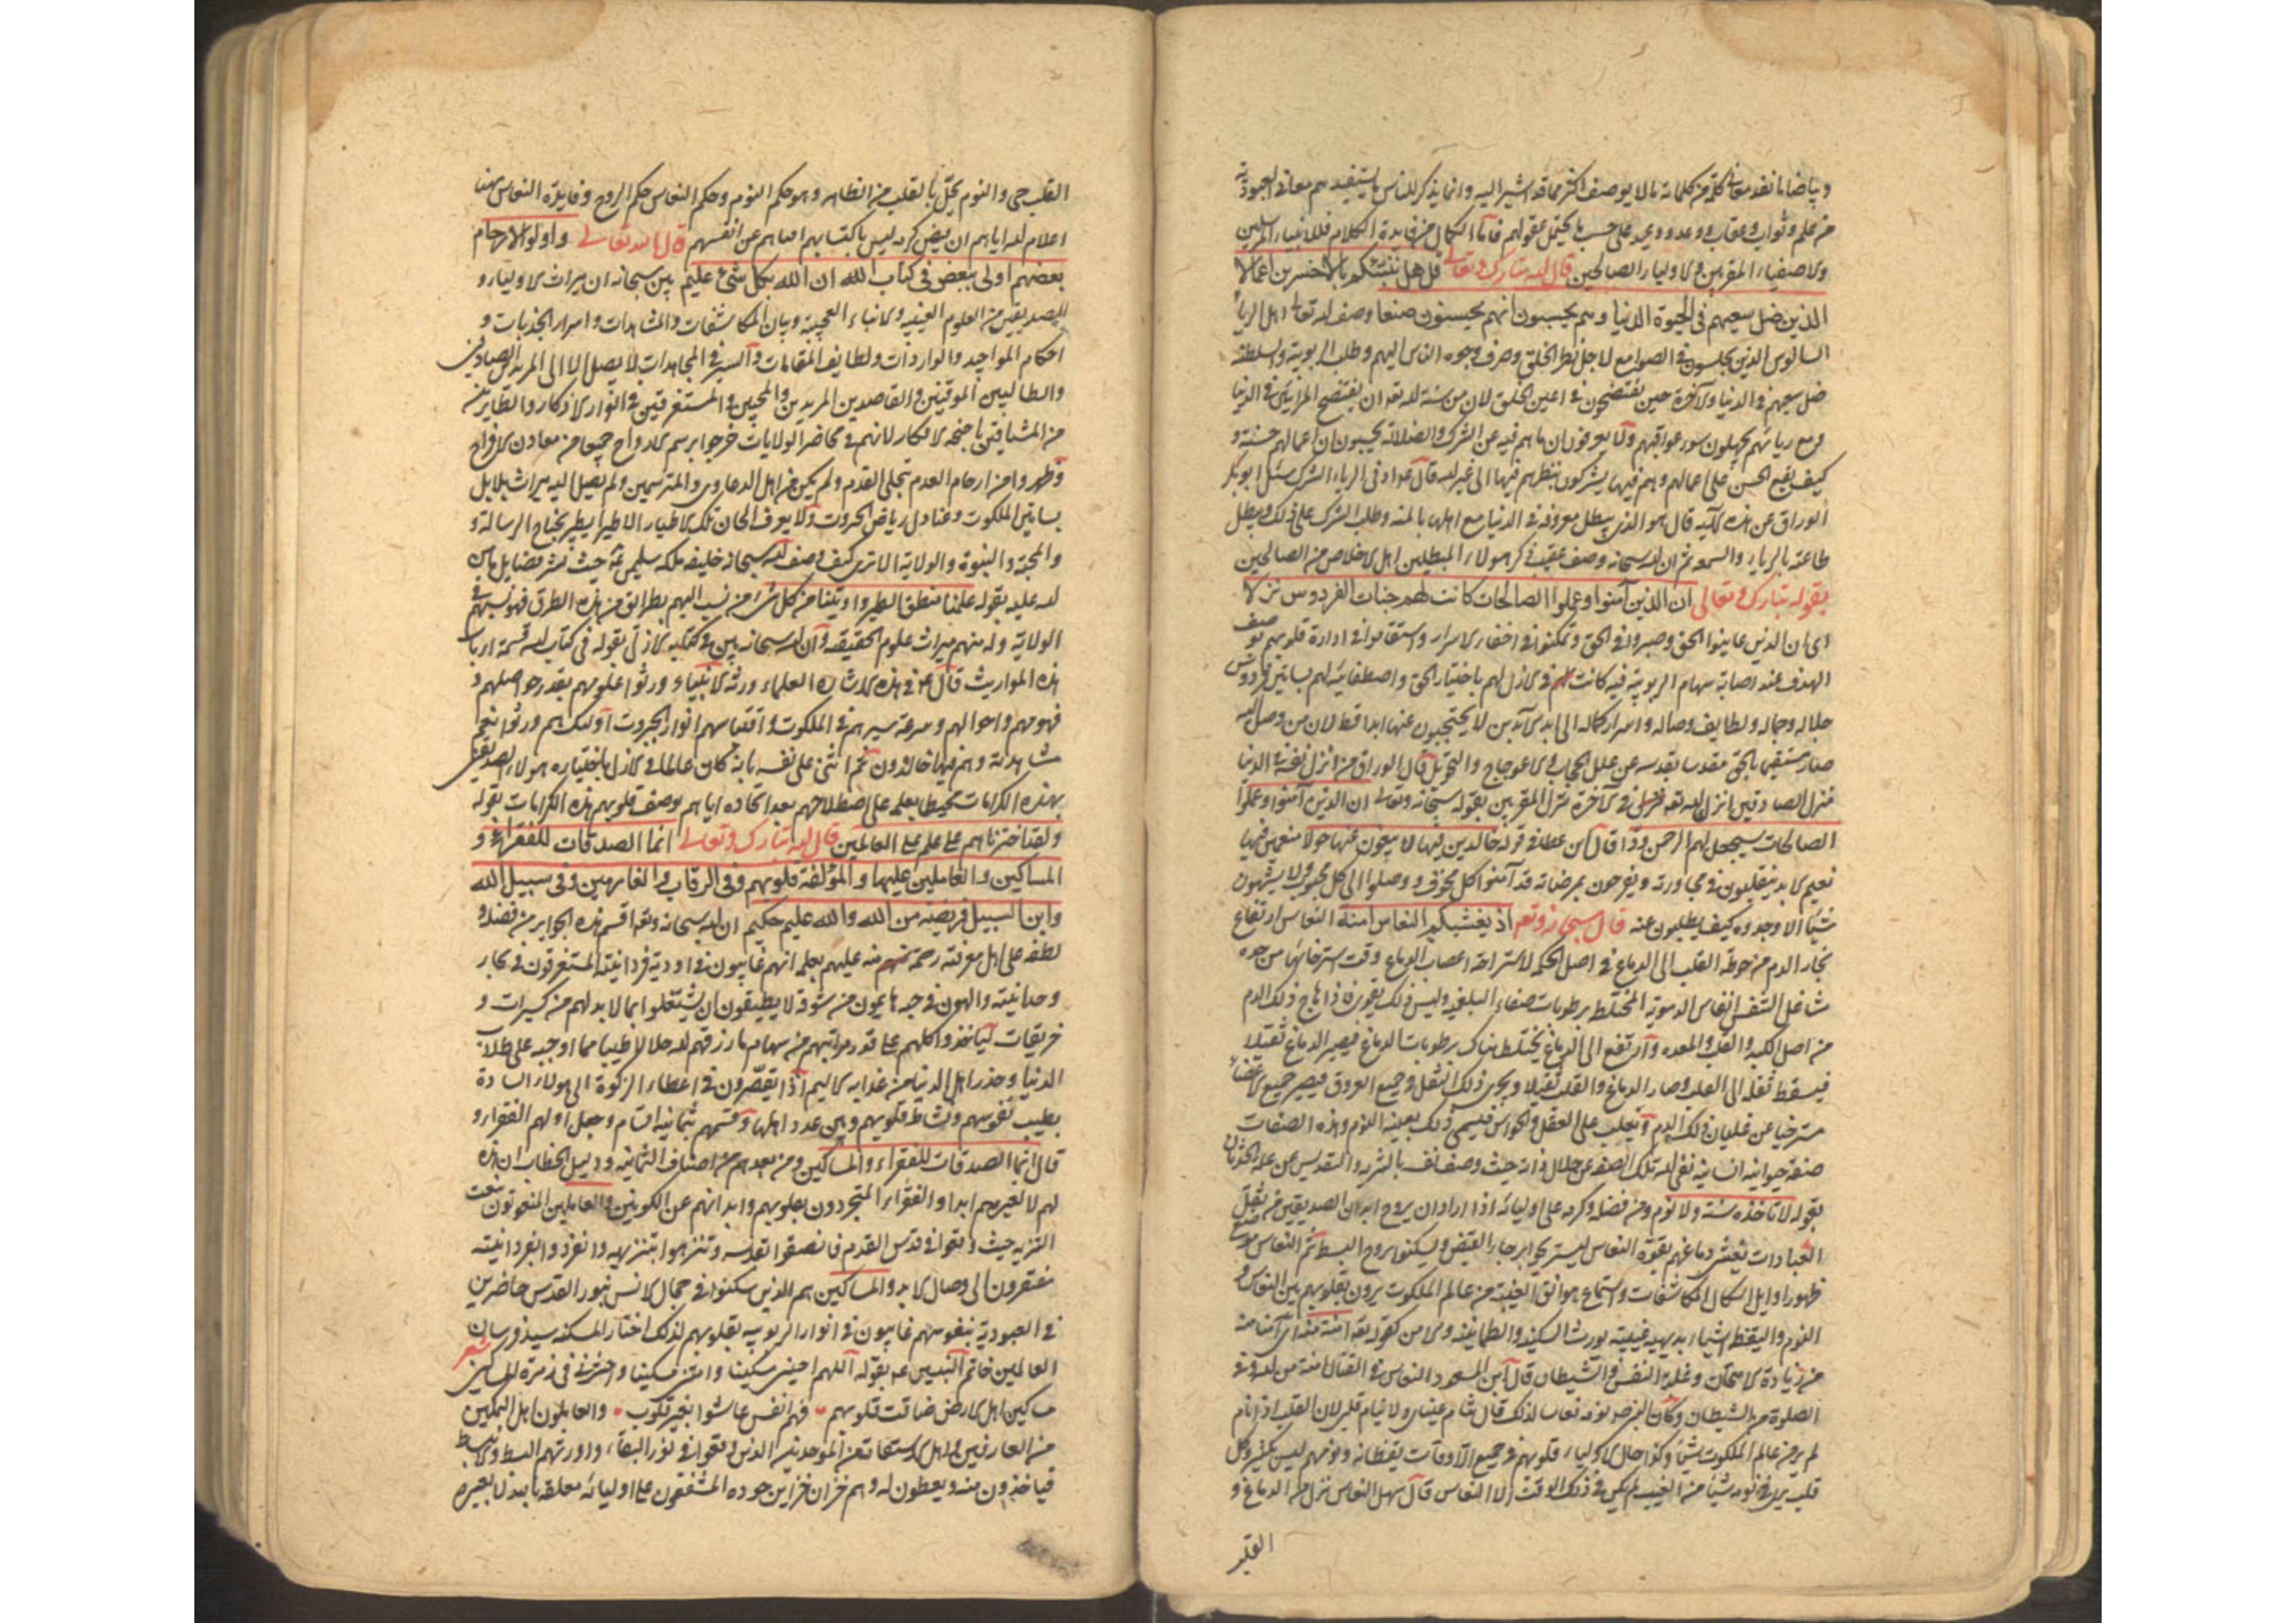 وبياضا ما نفد معانى كلمة من كلماته بما لا يوصف اكثر مما قد اشير اليه وانما يذكر للناس يستفيد بهم معانى العبودية
من علم وثواب وعقاب ووعد ووعيد على حسب ما يحتمل عقولهم فاما الكمال من فايدة الكلام فللانبياء والمرسلين
ولاصفياء المقربين ولاولياء الصالحين قال الله تبارك وتعالى قل هل ننبئكم بالاخسرين اعمالا
الذين ضل سعيهم فى الحيوة الدنيا وهم يحسبون انهم يحسنون صنعا وصف الله تعالى اهل الرياء
السالوس الذين يجلسون فى الصوامع لاجل نظر الخلق وصرف وجوه الناس اليهم وطلب الربوبية والسلطنة
ضل سعيهم فى الدنيا والاخرة حين يفتضحون فى اعين الخلق لان من سنة الله تعه ان يفتضح المرائين فى الدنيا
ومع ريائهم يجهلون سوء عواقبهم ولا يعرفون ان ما هم فيه عن الشرك والضلالة يحسبون ان اعمالهم حسنة و
كيف يقع الحسن على اعمالهم وهم فيها يشركون بنظرهم فيها الى غير الله قال عداد فى الرياء الشرك سئل ابو بكر
الوراق عن هذه الآية قال هو الذى يبطل معروفه فى الدنيا مع اهلها بالمنة وطلب الشكر على ذلك ويبطل
طاعته بالرياء والسمعة ثم ان الله سبحانه وصف عقيب ذكر هولاء المبطلين اهل الاخلاص من الصالحين
بقوله تبارك وتعالى ان الذين آمنوا وعملوا الصالحات كانت لهم جنات الفردوس نزلا
اى ان الذين عاينوا الحق وصبروا فى الحق وتمكنوا فى اخفاء الاسرار واستقاموا فى ادارة قلوبهم بوصف
الهدف عند اصابة سهام الربوبية فيه كانت لهم فى الازل لهم باختيار الحق واصطفائيته لهم بساتين فردوس
جلاله وجماله ولطايف وصاله واسرار كماله الى ابد الآبدين لا يحتجبون عنها ابدا قط لان من وصل اليه
صار مستقيما بالحق مقدسا بقدسه عن علل الحجاب والاعوجاج والتحويل قال الوراق من انزل نفسه فى الدنيا
منزل الصادقين انزل الله تعه فى الاخرة منزل المقربين بقوله سبحانه وتعالى ان الذين آمنوا وعملوا
الصالحات سيجعل لهم الرحمن ودا قال ابن عطا فى قوله خالدين فيها لا يبغون عنها حولا منعمين فيها
نعيم الابد يتقلبون فى مجاورته ويفرحون بمرضاته قد آمنوا كل مخوف ووصلوا الى كل محبوب لا يشتهون
شيئا الا وجدوه كيف يطلبون عنه قال سبحانه وتعه اذ يغشيكم النعاس امنة النعاس ارتفاع
بخار الدم من حوطة القلب الى الدماغ فى اصل الحكمة لاستراحة اعصاب الدماغ وقت استرخائها من حره
من اصل الكبد والقلب والمعده وارتفع الى الدماغ يختلط هناك برطوبات الدماغ فيصير الدماغ ثقيلا
فيسقط ثقله الى القلب وصار الدماغ والقلب ثقيلا ويجرى ذلك الثقل فى جميع العروق فيصير جميع الاعضاء
مسترخيا عن غليان ذلك الدم ويغلب على العقل والحواس فيسمى ذلك بعينه النوم وهذه الصفات
صفة حيوانية انسانية نفى الله تلك الصفة عن جلال ذاته حيث وصف نفسه بالتنزيه والتقديس عن علة الحدثان
بقوله لا تاخذه سنة ولا نوم ومن فضله وكرمه على اوليائه اذا اراد ان يروح ابدان الصديقين من ثقل
العبادات يغشى دماغهم بقوة النعاس ليستريحوا برجاء القبض ويسكنوا بروح البسط ثم النعاس موضع
ظهور اوايل اشكال المكاشفات واستماع هواتف الغيبة من عالم الملكوت يرون بقلوبهم بين النعاس و
النوم واليقظة اشياء بديهية غيبية يورث السكينة والطمانينة والامن كقوله تعه امنة منه اى آمنا منه
من زيادة الامتحان وغلبة النفس والشيطان قال ابن المسعود النعاس فى القتال امنة من الله وفى
الصلوة من الشيطان وكان النبى صم نومه نعاسا لذلك قال تنام عيناى ولا ينام قلبى لان القلب اذا نام
لم ير من عالم الملكوت شيئا وكذا حال الاولياء قلوبهم فى جميع الاوقات يقظانة ونومهم ليس بكثير وكل
قلب يرى فى نومه شيئا من الغيب لم يكن فى ذلك الوقت الا النعاس قال سهل النعاس نزل من الدماغ و
القلب
القلب حى والنوم يحل بالقلب من الظاهر وهو حكم النوم وحكم النعاس حكم الروح وفايدة النعاس هنا
اعلام الله اياهم ان بفيض كرمه ليس باكتسابهم افناهم عن انفسهم قال الله تعالى واولوا الارحام
بعضهم اولى ببعض فى كتاب الله ان الله بكل شئ عليم بين سبحانه ان ميراث الاولياء و
للصديقين من العلوم الغيبية والانباء العجيبة وبيان المكاشفات والمشاهدات واسرار الجذبات و
احكام المواجيد والواردات ولطايف المقامات والسير فى المجاهدات لا يصل الا الى المريدين الصادقين
والطالبين الموقنين والقاصدين المريدين والمحبين والمستغرقين فى انوار الاذكار والطايرين
من المشتاقين باجنحة الافكار لانهم فى محاضر الولايات خرجوا برسم الارواح جميعا من معادن الافراح
وظهروا من ارحام العدم بتجلى القدم ولم يكن من اهل الدعاوى والمترسمين ولم يصل اليه ميراث بلابل
بساتين الملكوت وعنادل رياض الجبروت ولا يعرف الحان تلك الاطيار الا طير يطير بجناح الرسالة و
والمحبة والنبوة والولاية الا ترى كيف وصف الله سبحانه خليفة ملكه سليمن عه حيث نشر فضايل ما من
الله عليه بقوله علمنا منطق الطير واوتينا من كل شئ من نسب اليهم بطرائق من هذه الطرق فهو نسيبهم فى
الولاية وله منهم ميراث علوم الحقيقة وان الله سبحانه بين فى كتابه الازلى بقوله فى كتاب الله قسمة ارباب
هذه المواريث قال عه فى هذه الاشارة العلماء ورثة الانبياء ورثوا علومهم بقدر حواصلهم و
فهومهم واحوالهم وسرعة سيرهم فى الملكوت واقتباسهم انوار الجبروت اولئك هم ورثوا نعم
مشاهدته وهم فيها خالدون ثم اثنى على نفسه بانه كان عالما فى الازل باختياره هولاء الصديقين
بهذه الكرامات محيطا بعلمه على اصطلاحهم بعد اتحاده اياهم بوصف قلوبهم هذه الكرامات بقوله
ولقد اخترناهم على علم على العالمين قال الله تبارك وتعالى انما الصدقات للفقراء و
المساكين والعاملين عليها والمؤلفة قلوبهم وفى الرقاب والغارمين وفى سبيل الله
وابن السبيل فريضة من الله والله عليم حكيم ان الله سبحانه وتعه اقسم هذه الجواهر من فضله و
لطفه على اهل معرفته رحمة منه عليهم بعلمه انهم غايبون فى اودية فردانيته المستغرقون فى بحار
وحدانيته والهون فى حبه هايمون من شوقه لا يطيقون ان يشتغلوا بما لا بد لهم من كسيرات و
خريقات لياخذوا كلهم على قدر مراتبهم من سهام ما رزقهم الله حلالا طيبا مما اوجبه على طلاب
الدنيا وحذر اهل الدنيا من عذابه الاليم اذا يقصرون فى اعطاء الزكوة الى هولاء السادة
بطيب نفوسهم ونشاط قلوبهم وبين عدد اهلها وقسمهم بثمانية اقسام وجعل اولهم الفقراء و
قال انما الصدقات للفقراء والمساكين ومن بعدهم من اصناف الثمانية ودليل الخطاب ان هذه
لهم لا لغيرهم ابدا والفقراء المتجردون بقلوبهم وابدانهم عن الكونين والعاملين المنعوتون بنعت
التنزيه حيث وقعوا فى قدس القدم فاتصفوا بقدسه وتنزهوا بتنزيهه وانفردوا بفردانيته
مفتقرون الى وصال الابد والمساكين هم الذين سكنوا فى جمال الانس بنور القدس حاضرين
فى العبودية بنفوسهم غايبون فى انوار الربوبية بقلوبهم لذلك اختار المسكنة سيد فرسان
العالمين خاتم النبيين عه بقوله اللهم احينى مسكينا وامتنى مسكينا واحشرنى فى زمرة المساكين شعر
مساكين اهل الارض ضاقت قلوبهم فهم انفس عاشوا بغير قلوب والعاملون اهل التمكين
من العارفين واهل الاستقامة من الموحدين الذين وقعوا فى نور البقاء واورثهم البسط والانبساط
فياخذون منه ويعطون له وهم خزان خزاين جوده المشفقون على اوليائه